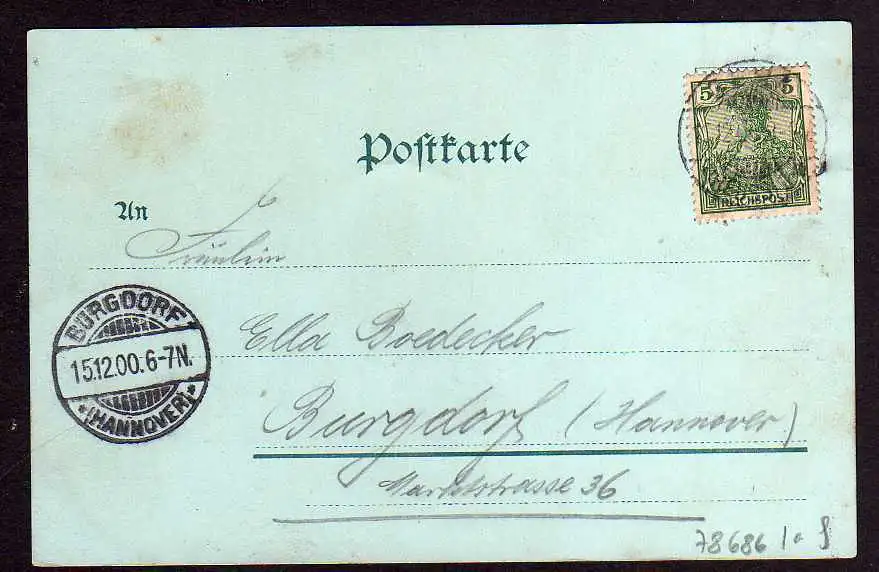 5 5
REICHSPOST
Postkarte
An
Fräulein
BURGDORF
15.12.00.6-7N.
*(HANNOVER)*
Ella Boedecker
Burgdorf (Hannover)
Marktstrasse 36
78686